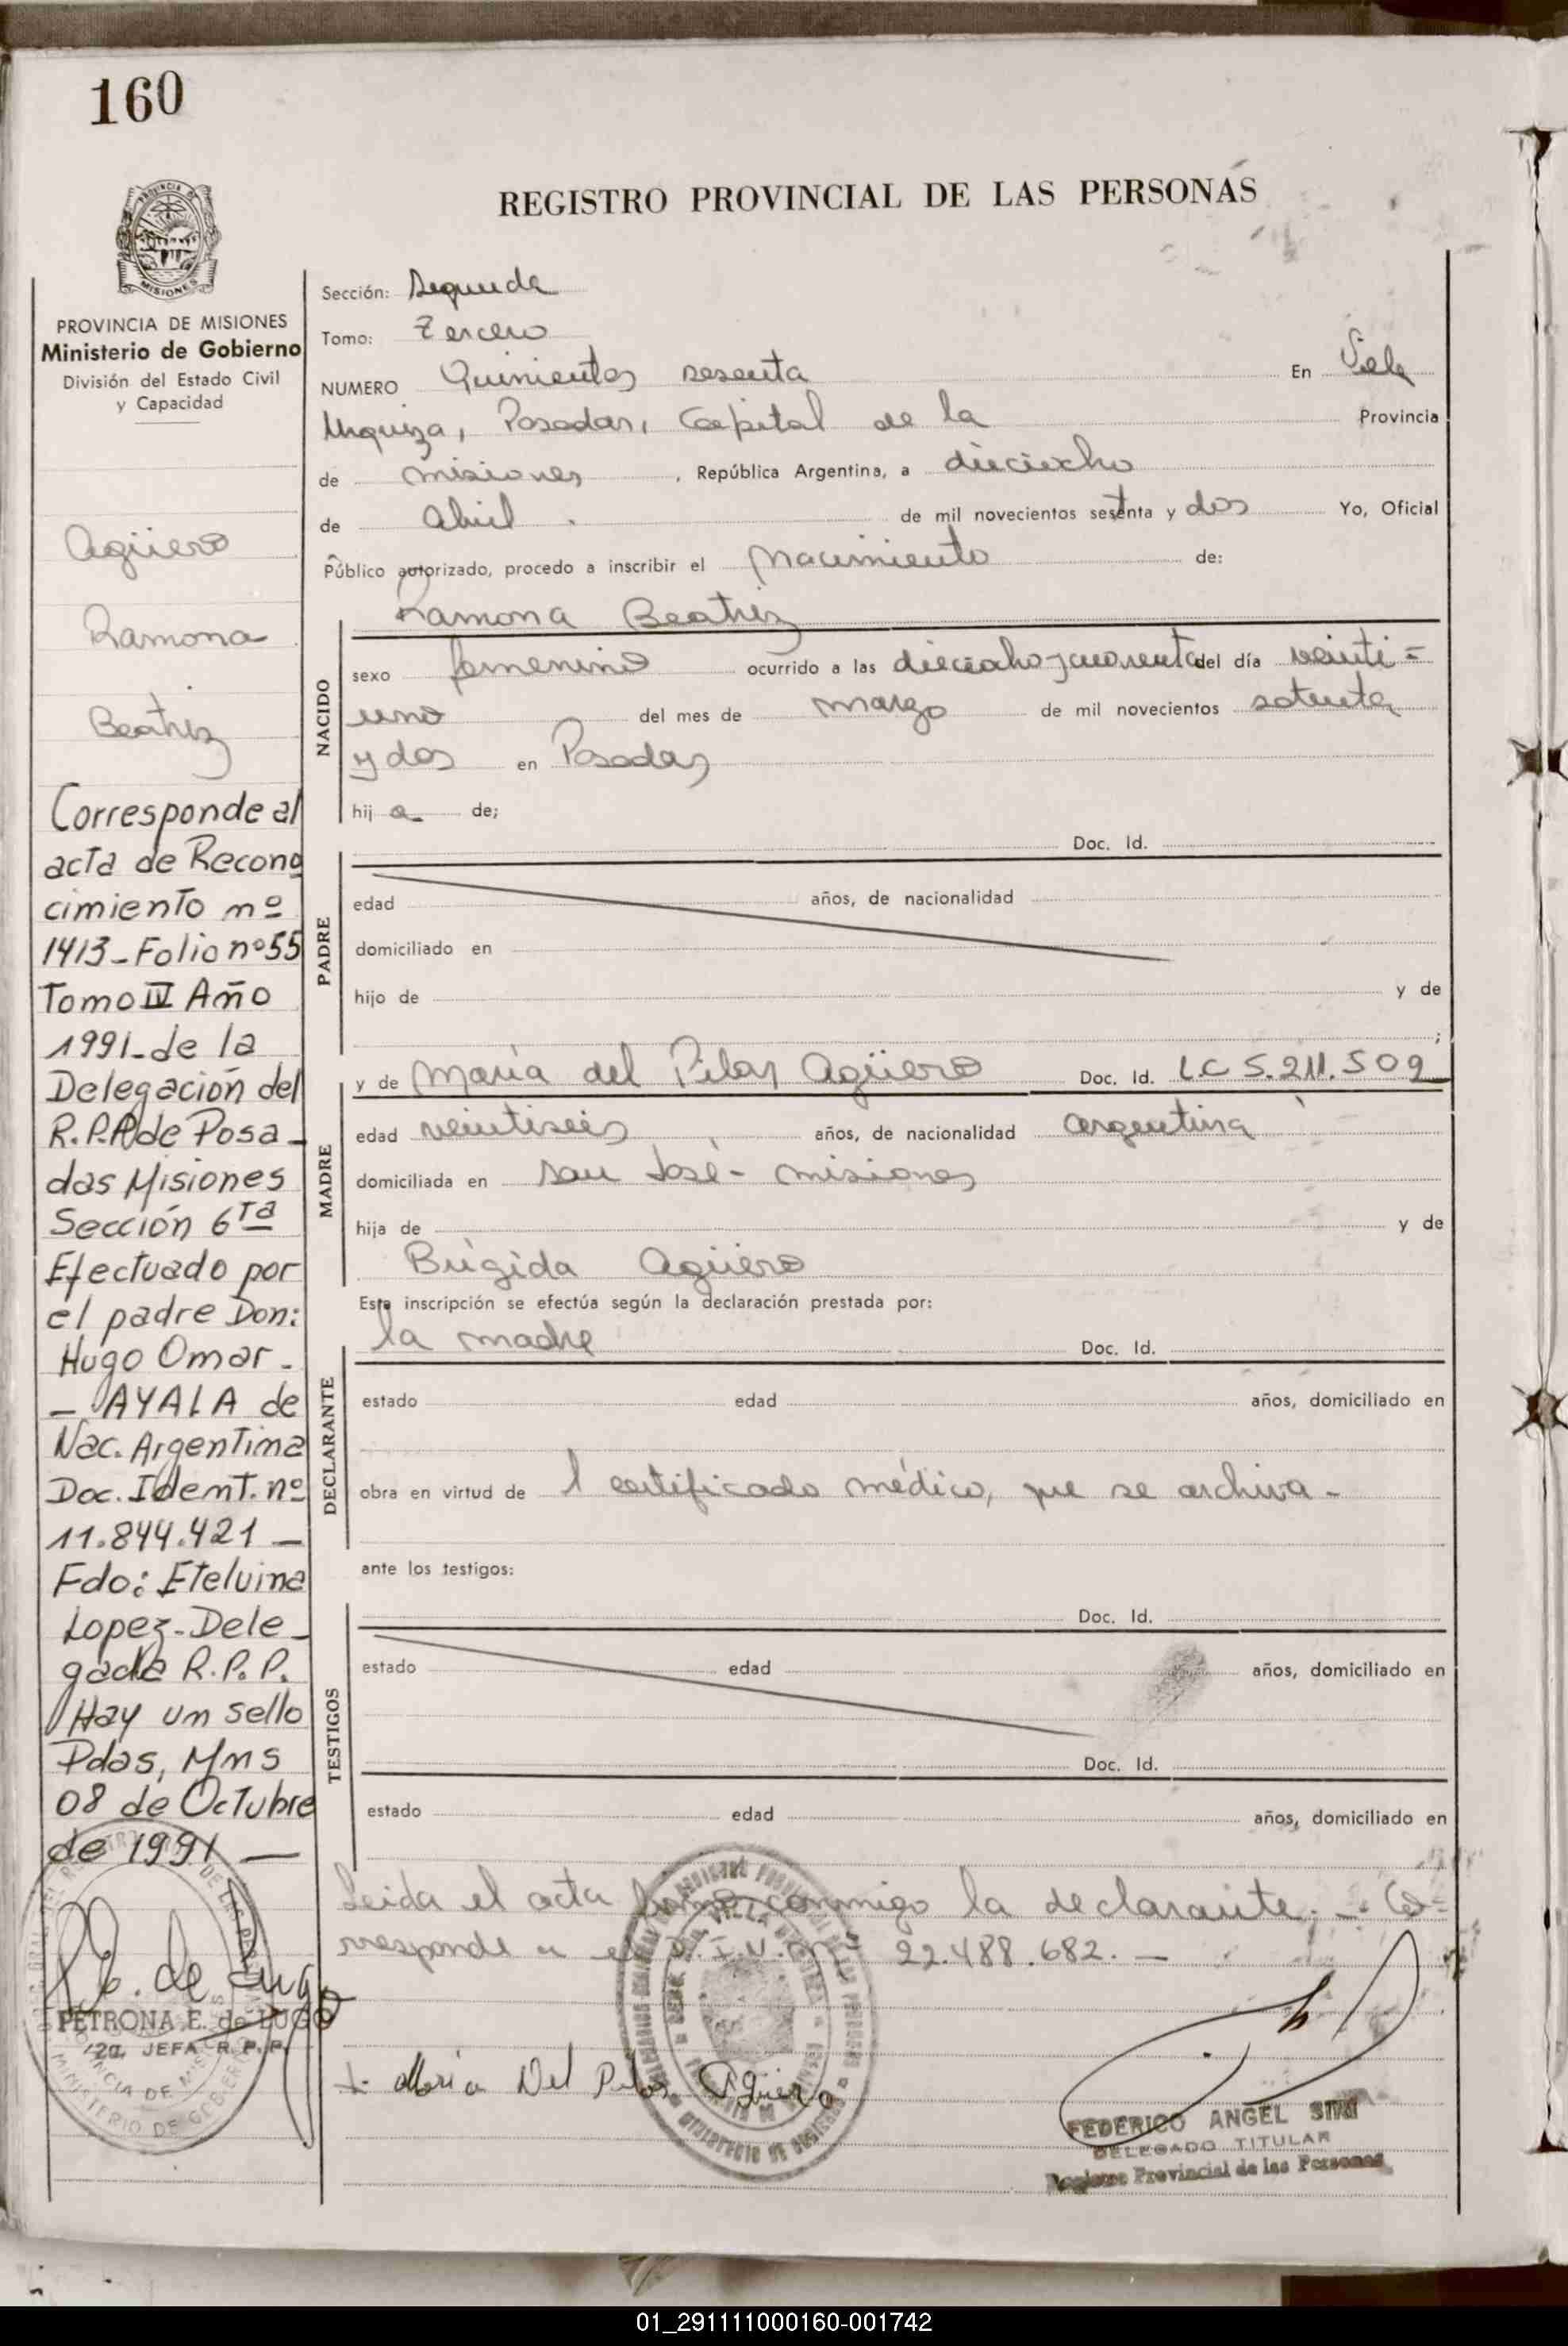 160
REGISTRO PROVINCIAL DE LAS PERSONAS
MISIONES
PROVINCIA DE MISIONES
Ministerio de Gobierno
División del Estado Civil
y Capacidad
Agüero
Ramona
Beatriz
Corresponde al
acta de Recono
cimiento nº
1413-Folio nº55
Tomo IV Año
1991-de la
Delegación del
R.P.P de Posa-
das Misiones
Sección 6ta
Efectuado por
el padre Don:
Hugo Omar-
- AYALA de
Nac. Argentina
Doc. Ident. nº
11.844.421 -
Fdo: Etelvina
Lopez-Dele-
gada R.P.P.
Hay un sello
Pdas, Mns
08 de Octubre
de 1991 -
PETRONA E. de LUGO
JEFA R.P.P.
Sección: Segunda
Tomo: Tercero
NUMERO Quinientos sesenta En
Urquiza, Posadas, Capital de la Provincia
de Misiones, República Argentina, a dieciocho
de Abril. de mil novecientos setenta y dos Yo, Oficial
Público autorizado, procedo a inscribir el Nacimiento de:
Ramona Beatriz
NACIDO
sexo femenino ocurrido a las dieciocho y cuarenta del día veinti=
uno del mes de marzo de mil novecientos setenta
y dos en Posadas
hij a de;
Doc. Id.
PADRE
edad años, de nacionalidad
domiciliado en
hijo de y de
;
MADRE
y de María del Pilar Agüero Doc. Id. L.C 5.211.509
edad veintiseis años, de nacionalidad argentina
domiciliada en San José - Misiones
hija de y de
Brígida Agüero
Esta inscripción se efectúa según la declaración prestada por:
la madre Doc. Id.
DECLARANTE
estado edad años, domiciliado en
obra en virtud de 1 certificado médico, que se archiva -
ante los testigos:
Doc. Id.
TESTIGOS
estado edad años, domiciliado en
Doc. Id.
estado edad años, domiciliado en
Leida el acta firma conmigo la declarante. - Co=
rresponde a el D.I.N. Nº 22.488.682. -
Maria Del Pilar Agüero
FEDERICO ANGEL
DELEGADO TITULAR
Registro Provincial de las Personas
01_291111000160-001742